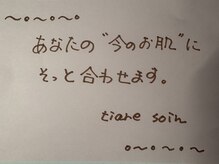 あなたの"今のお肌"に
そっと合わせます。
tiare soin